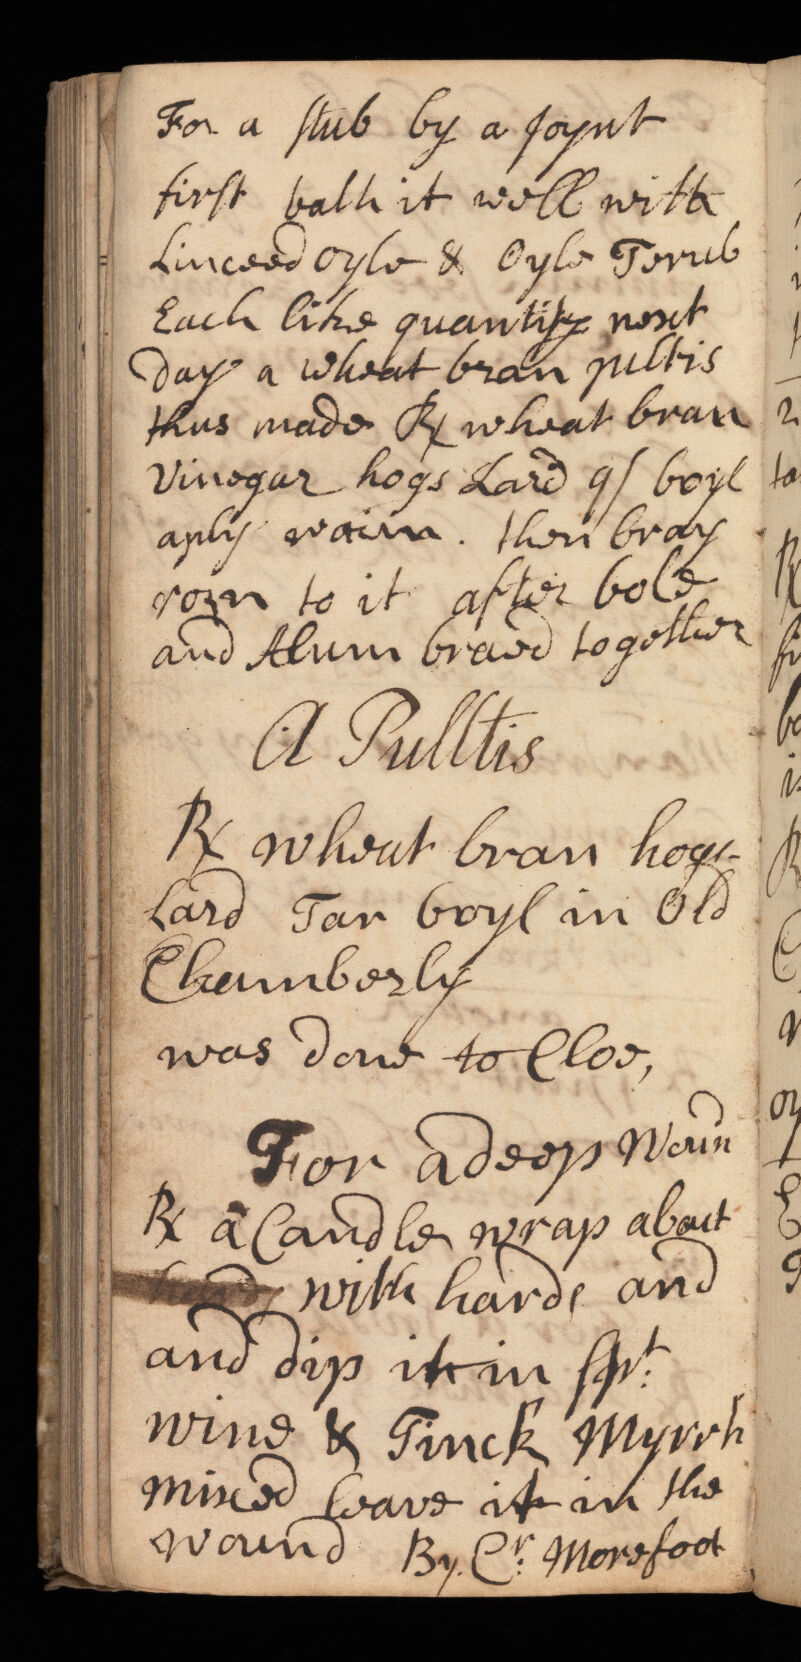 For a stub by a Joynt
first bath it well with
Linceed oyle & Oyle Terub
Each like quantity next
day a wheat bran pultis
thus made ℞ wheat bran
Vinegar hogs Lard qs boyl
aply warm. then bray
rozn to it after bole
and Alum braed together
A Pulltis
℞ wheat bran hogs
Lard Tar boyl in Old
Chamberly
was done to Cloe,
For a deep Woun
℞ a Candle wrap about
with hards and
and dip it in spt:
wine & Tinck Myrrh
mixed leave it in the
wound By. Cr: Morefoot